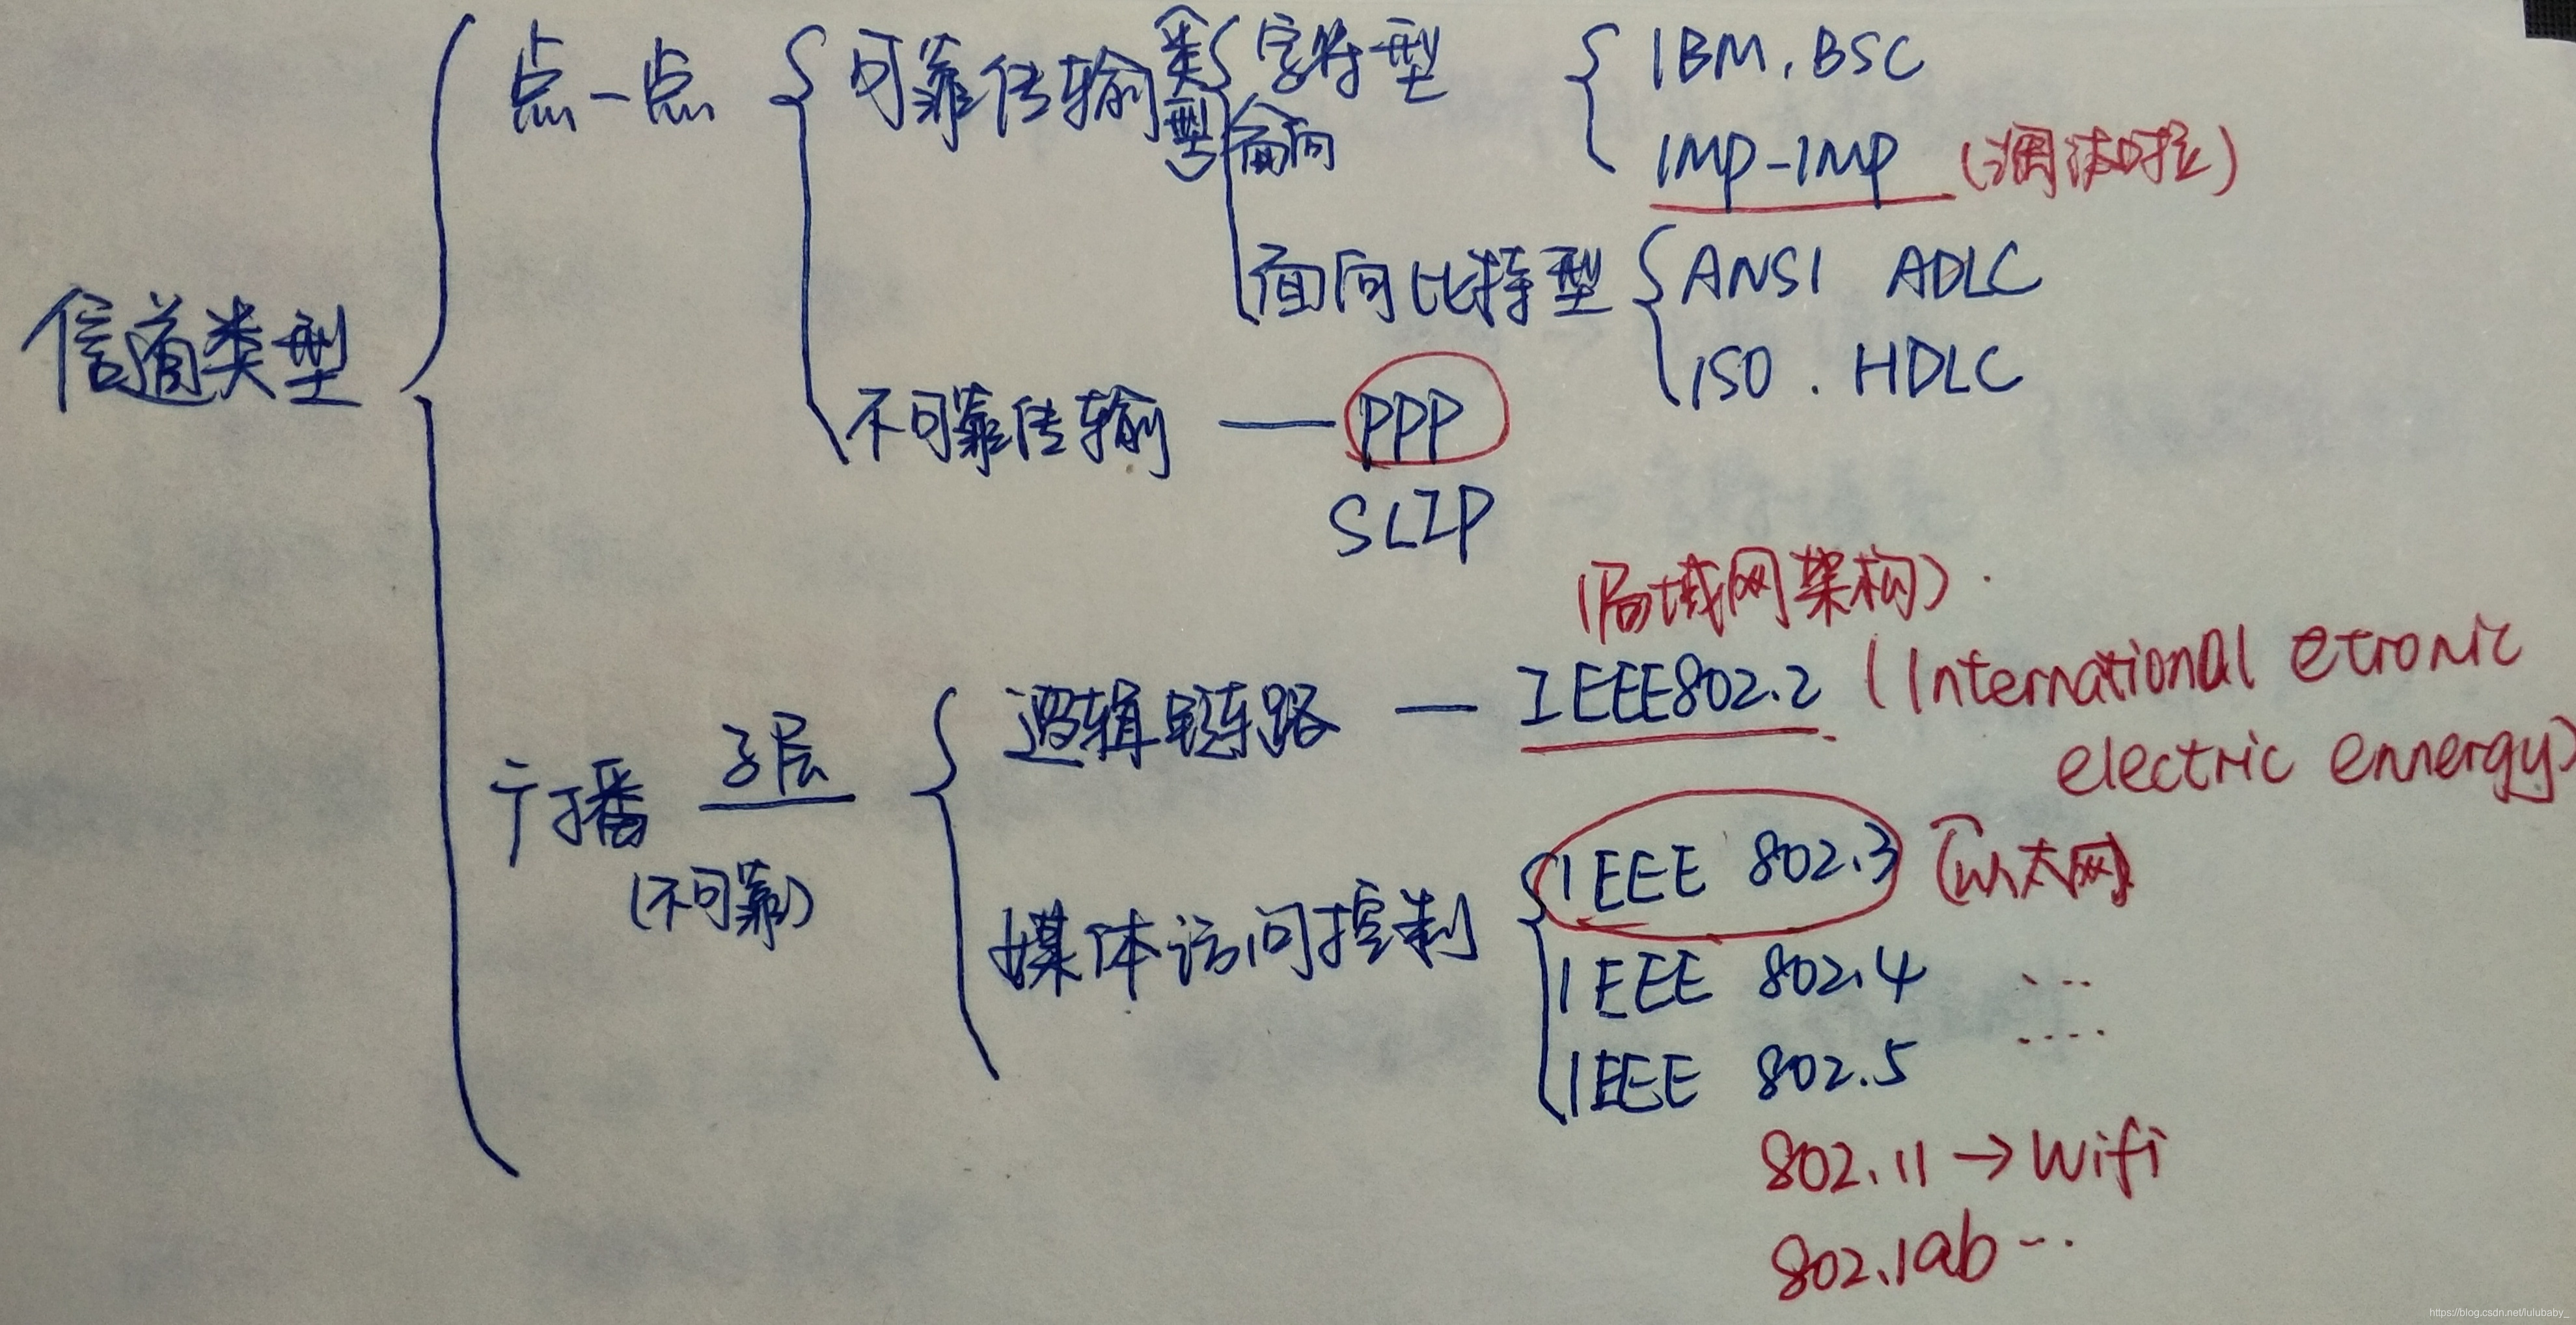 信道类型
点-点
可靠传输
(类型)
字符型
面向
IBM. BSC
IMP-IMP
面向比特型
ANSI ADLC
ISO. HDLC
不可靠传输 — PPP
SLIP
广播 子层
(不可靠)
(局域网架构)
逻辑链路 — IEEE802.2 (International etronic
electric ennergy)
媒体访问控制
IEEE 802.3 (以太网)
IEEE 802.4 ...
IEEE 802.5 ....
802.11 → Wifi
802.1ab ...
https://blog.csdn.net/lulubaby_